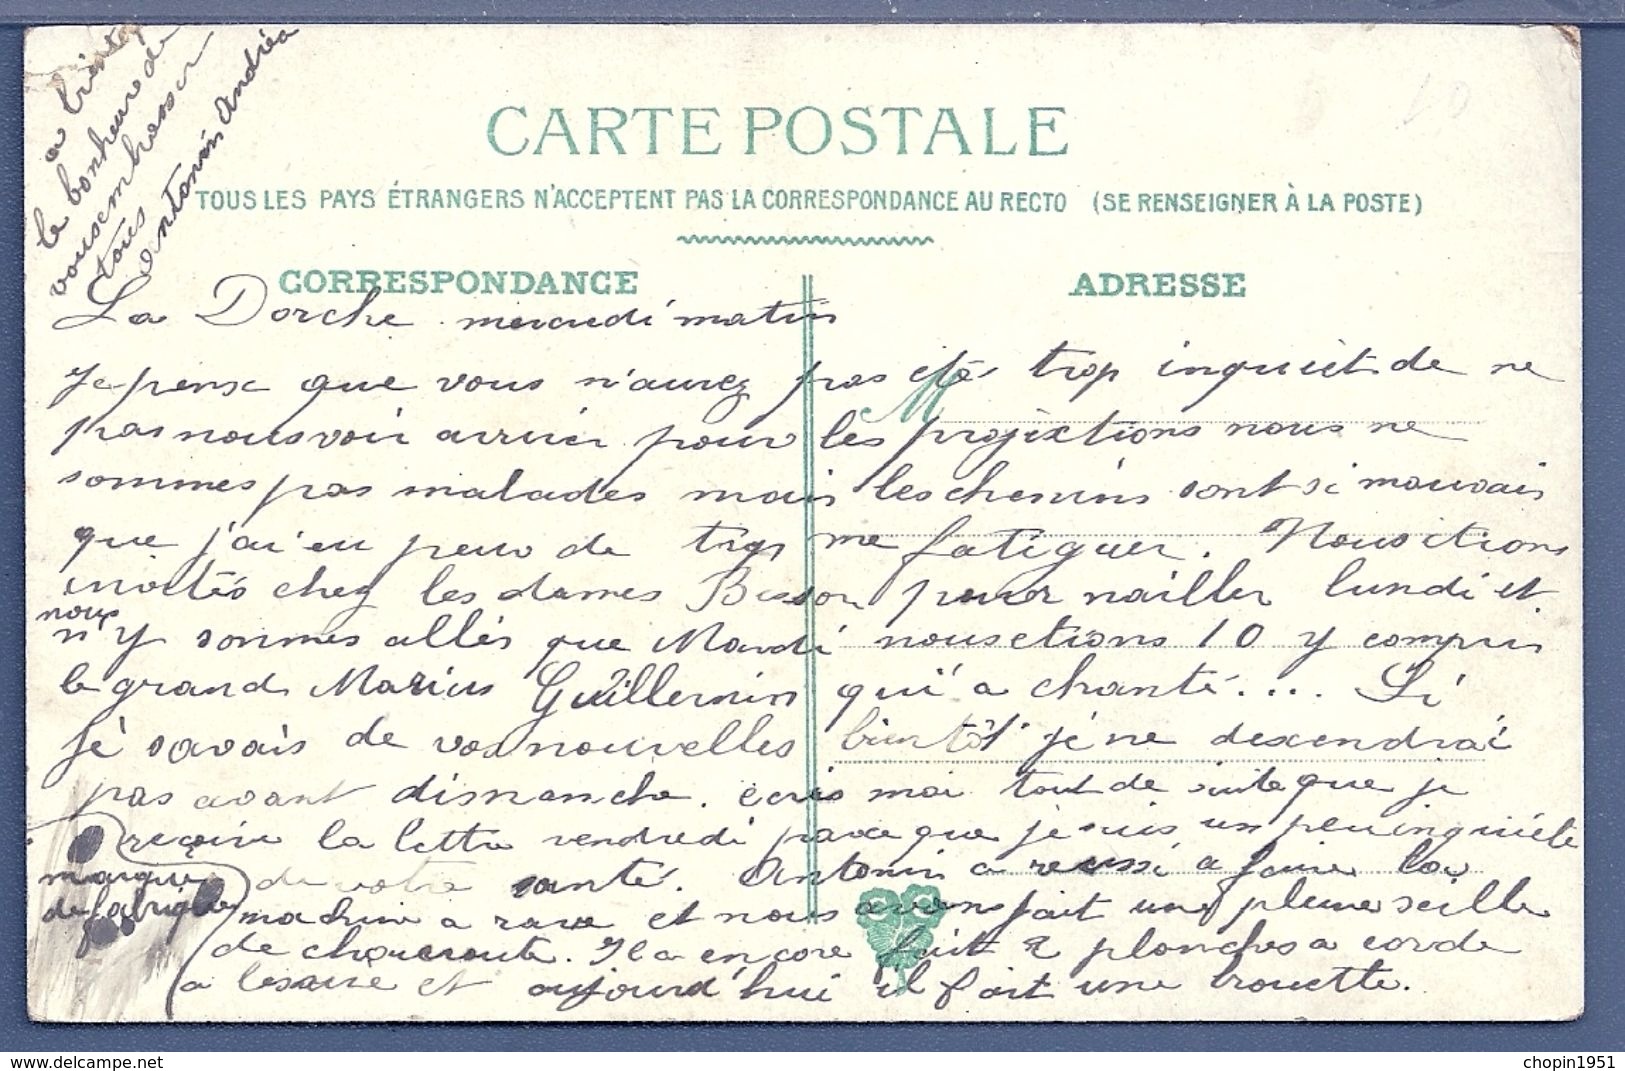 à bientôt
le bonheur de
vous embrasser
tous
Antonin Andréa
CARTE POSTALE
TOUS LES PAYS ÉTRANGERS N'ACCEPTENT PAS LA CORRESPONDANCE AU RECTO (SE RENSEIGNER À LA POSTE)
CORRESPONDANCE
ADRESSE
La Dorche mercredi matin
Je pense que vous n'aurez pas été trop inquiet de ne
pas nous voir arriver pour les projixtions nous ne
sommes pas malades mais les chemins sont si mauvais
que j'ai eu peur de trop me fatiguer. Nous étions
invités chez les dames Besson pour nailler lundi et
nous
n'y sommes allés que Mardi nous étions 10 y compris
le grand Marius Guillermin qui a chanté.... Si
je savais de vos nouvelles bientôt je ne descendrai
pas avant dimanche. écris moi tout de suite que je
reçoive la lettre vendredi parce que je suis un peu inquiète
de votre santé. Antonin a reussi a faire la
marque
de fabrique
machine a rave et nous avons fait une pleine seille
de choucroute. Il a encore fait 2 planches a corde
a lessive et aujourd'hui il fait une brouette.
chopin1951